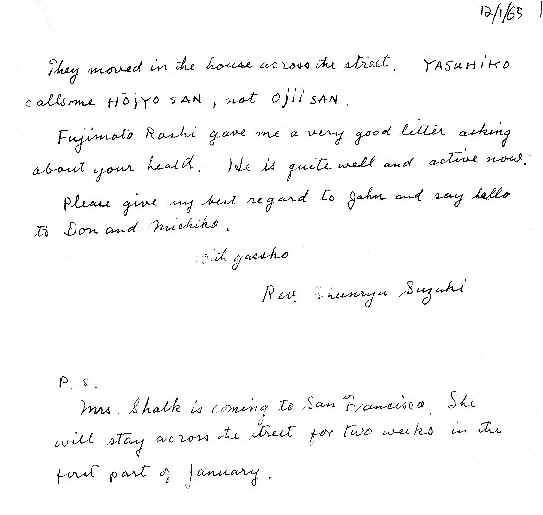 12/1/65
They moved in the house across the street. YASUHIKO
calls me HŌJYO SAN, not OjiiSAN.
Fujimoto Roshi gave me a very good letter asking
about your health. He is quite well and active now.
Please give my best regard to John and say hello
to Don and Michiko.
With gassho
Rev. Shunryu Suzuki
P. S.
Mrs. Shalk is coming to San Francisco. She
will stay across the street for two weeks in the
first part of January.